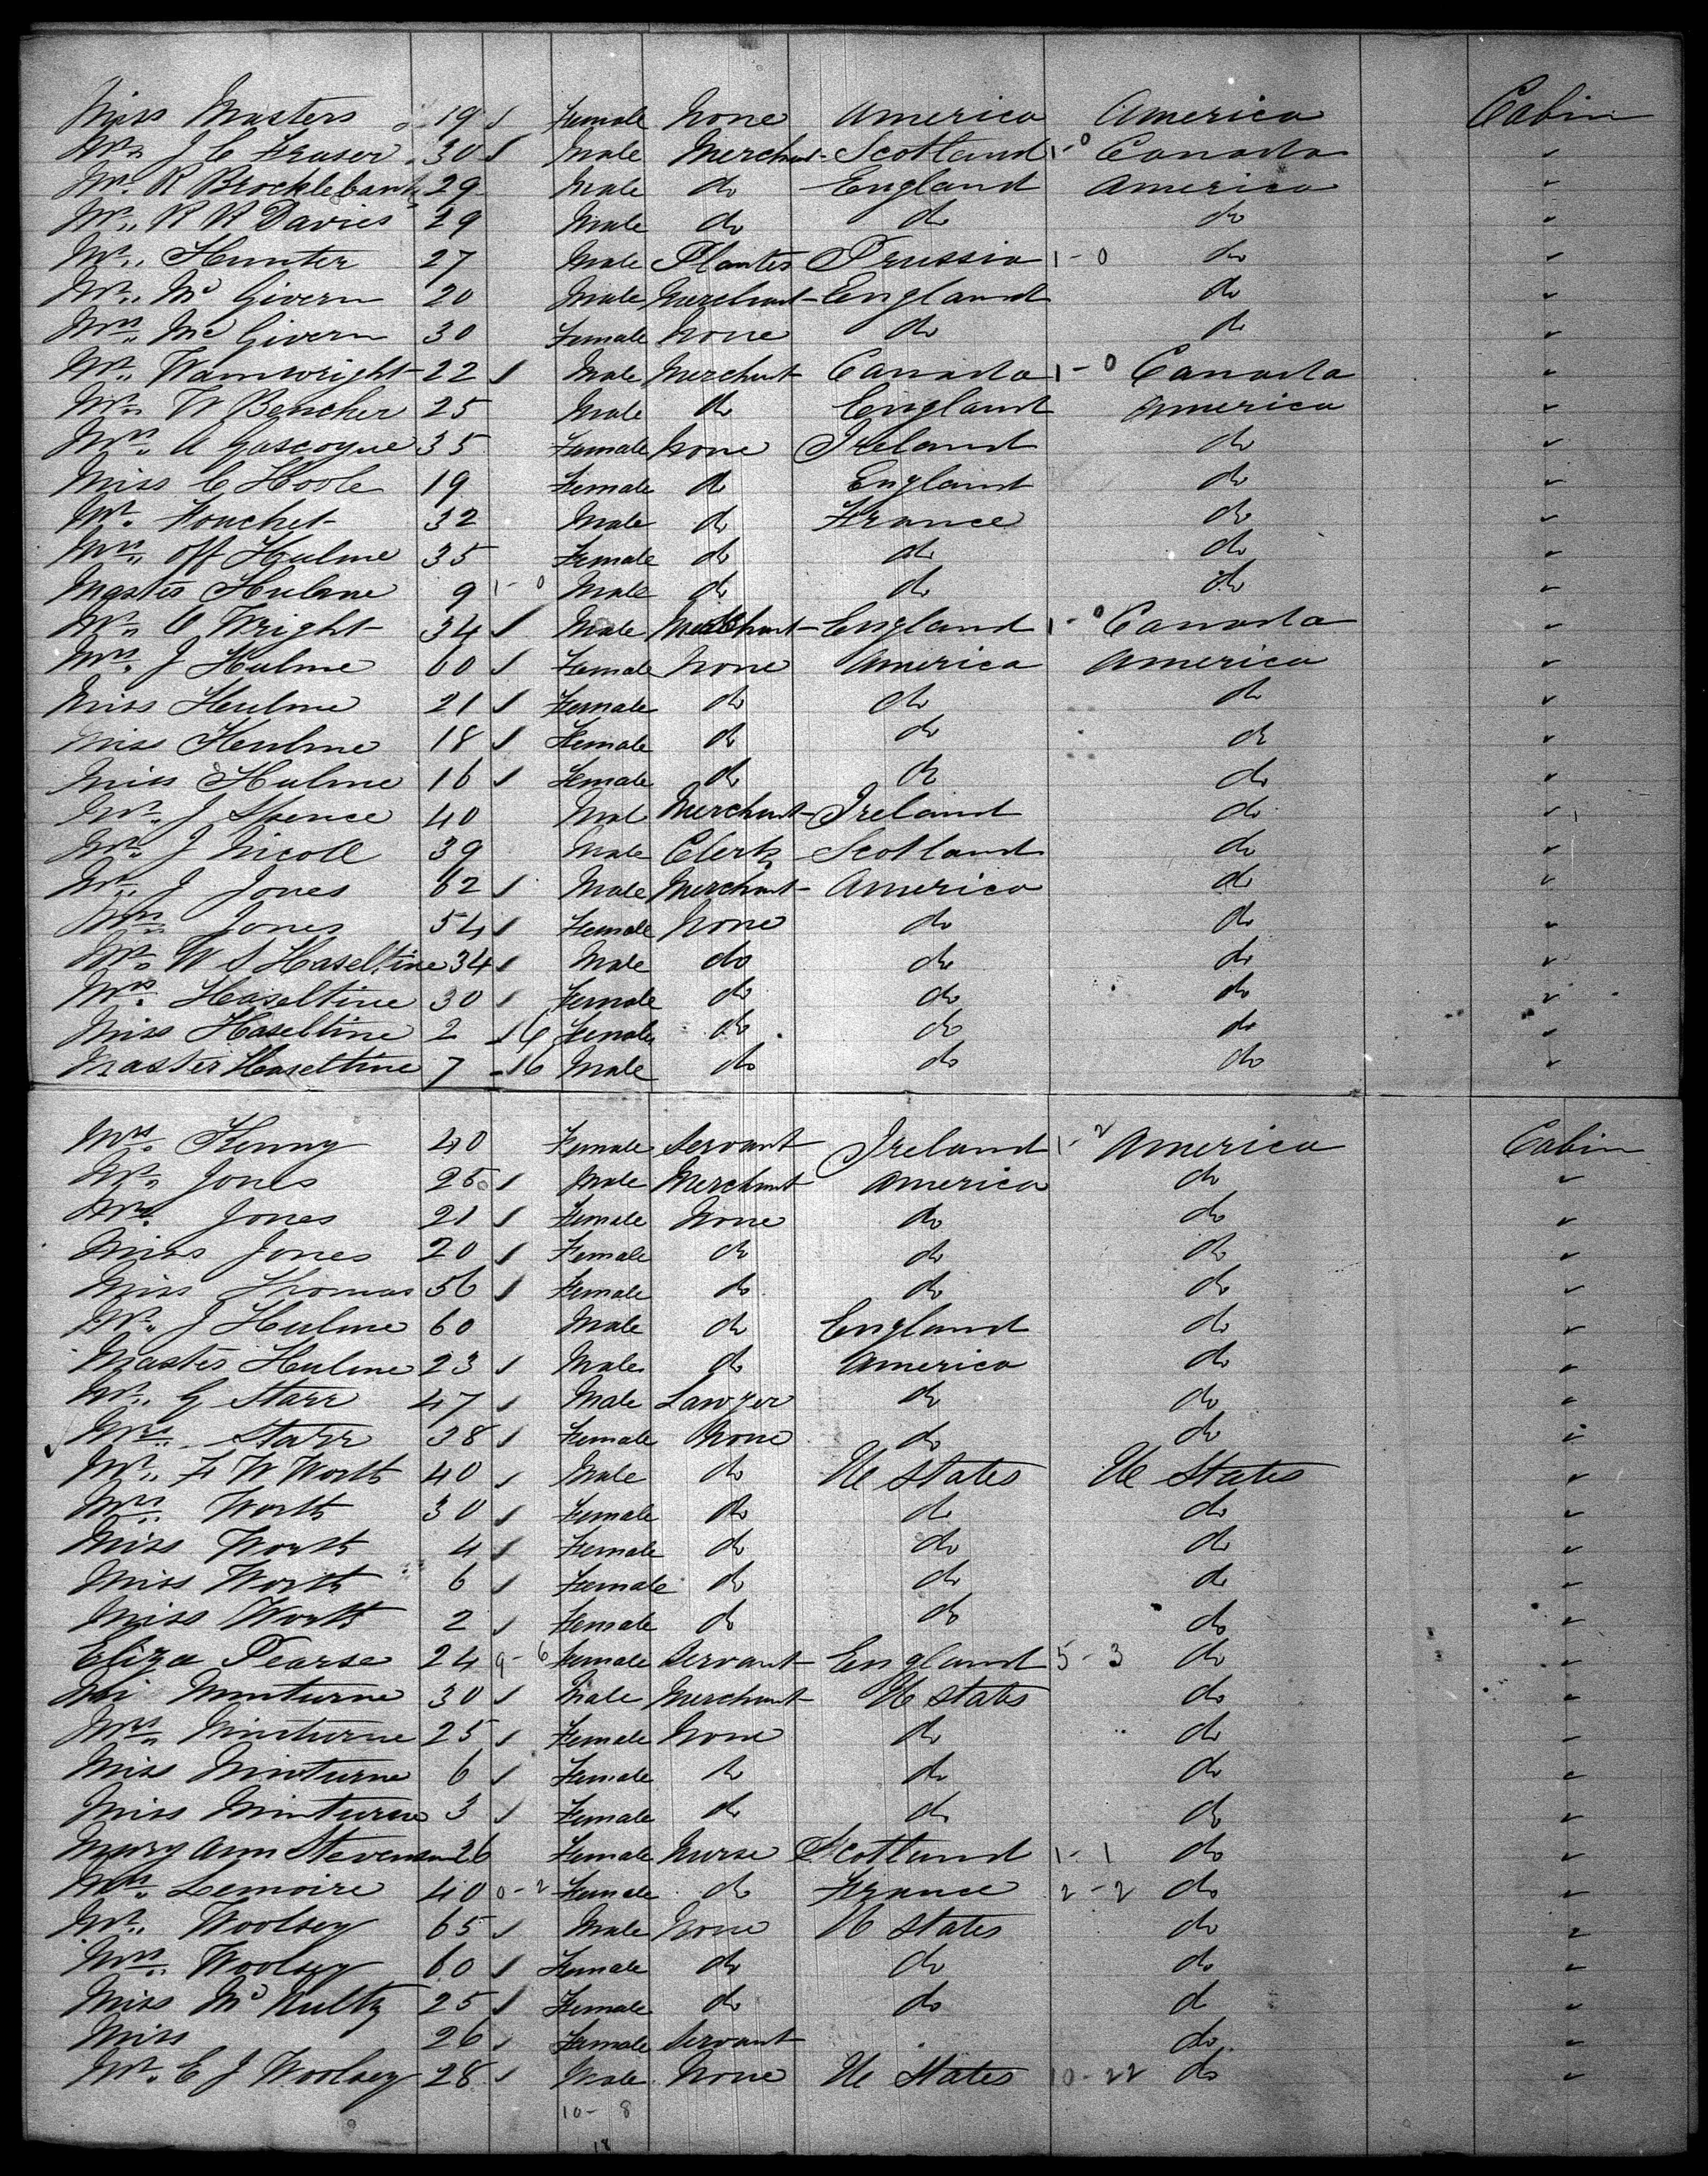 Miss Masters 19 Female None America America Cabin
Mr. J C Fraser 30 Male Merchant Scotland 1-0 Canada "
Mr. R Brocklebank 29 Male do England America "
Mr. R H Davies 29 Male do do do "
Mr. Hunter 27 Male Planter Prussia 1-0 do "
Mr. Mc Givern 20 Male Merchant England do "
Mrs. Mc Givern 30 Female None do do "
Mr. Wainwright 22 Male Merchant Canada 1-0 Canada "
Mr. W Bencher 25 Male do England America "
Mrs. A Gascogue 35 Female None Ireland do "
Miss C Hoole 19 Female do England do "
Mr. Fouchet 32 Male do France do "
Mrs. Off Hulme 35 Female do do do "
Master Hulme 9 1-0 Male do do do "
Mr. C Wright 34 Male Merchant England 1-0 Canada "
Mrs. J Hulme 60 Female None America America "
Miss Hulme 21 Female do do do "
Miss Hulme 18 Female do do do "
Miss Hulme 16 Female do do do "
Mr. J Spence 40 Mal Merchant Ireland do "
Mr. J Nicoll 39 Male Clerk Scotland do "
Mr. J Jones 62 Male Merchant America do "
Mrs. Jones 54 Female None do do "
Mr. W S Haseltine 34 Male do do do "
Mrs. Haseltine 30 Female do do do "
Miss Haseltine 2 Female do do do "
Master Haseltine 7 16 Male do do do "
Mrs. Kenny 40 Female Servant Ireland 1-2 America Cabin
Mr. Jones 25 Male Merchant America do "
Mrs. Jones 21 Female None do do "
Miss Jones 20 Female do do do "
Miss Thomas 56 Female do do do "
Mr. J Hulme 60 Male do England do "
Master Hulme 23 Male do America do "
Mr. G Starr 47 Male Lawyer do do "
Mrs. Starr 38 Female None do do "
Mr. F W Worth 40 Male do U States U States "
Mrs. Worth 30 Female do do do "
Miss Worth 4 Female do do do "
Miss Worth 6 Female do do do "
Miss Worth 2 Female do do do "
Eliza Pearse 24 9-6 Female Servant England 5-3 do "
Mr Minturne 30 Male Merchant U States do "
Mrs. Minturne 25 Female None do do "
Miss Minturne 6 Female do do do "
Miss Minturne 3 Female do do do "
Mary Ann Stevenson 26 Female Nurse Scotland 1-1 do "
Mrs. Lemoire 40 0-2 Female do France 2-2 do "
Mr. Woolsey 65 Male None U States do "
Mrs. Woolsey 60 Female do do do "
Miss Mc Nulty 25 Female do do d "
Miss 26 Female Servant do "
Mr. E J Woolsey 28 Male None U States 10-22 do "
10-8
18